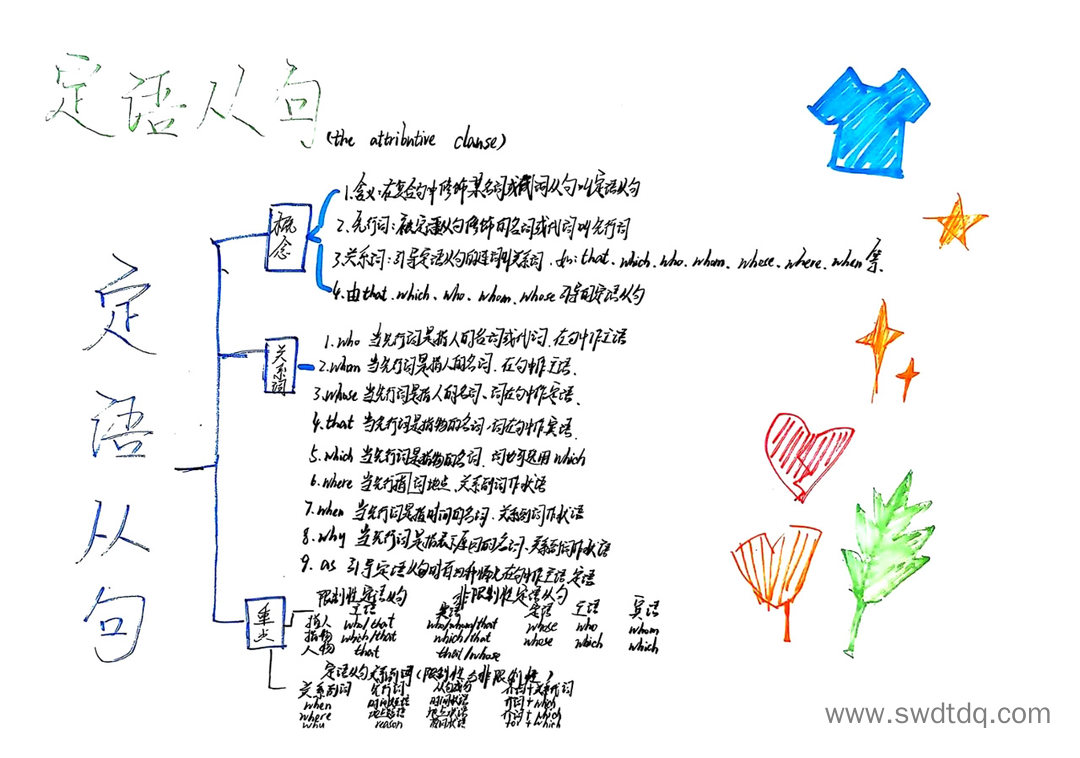 定语从句
(the attributive clause)
定语从句
概念
1.含义:在复合句中修饰某名词或代词从句叫定语从句
2.先行词:被定语从句修饰的名词或代词叫先行词
3.关系词:引导定语从句的连词叫关系词.如:that、which、who、whom、whose、where、when等
4.由that、which、who、whom、whose引导的定语从句
关系词
1.who 当先行词是指人的名词或代词、在句中作主语
2.whom 当先行词是指人的名词、在句中作主语.
3.whose 当先行词是指人的名词、词在句中作定语.
4.that 当先行词是指物的名词.词在句中作宾语.
5.which 当先行词是指物的名词.均可选用which
6.where 当先行词地点 关系副词作状语
7.when 当先行词是指时间的名词、关系副词作状语
8.why 当先行词是指表示原因的名词、关系副词作状语
9.as 引导定语从句时在句中作主语、定语
重点
限制性定语从句 非限制性定语从句
主语 宾语 定语 主语 宾语
指人 who/that who/whom/that whose who whom
指物 which/that which/that whose which which
人物 that that/whose
定语从句关系副词(限制性与非限制性)
关系副词 先行词 从句成分 介词+关系代词
when 时间短语 时间状语 介词+which
where 地点短语 地点状语 介词+which
why reason 原因状语 for+which
www.swdtdq.com